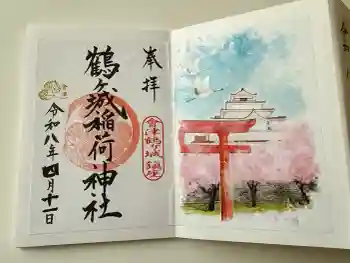 奉拝
鶴ヶ城稲荷神社
會津鶴ヶ城鎮座
令和八年四月十一日